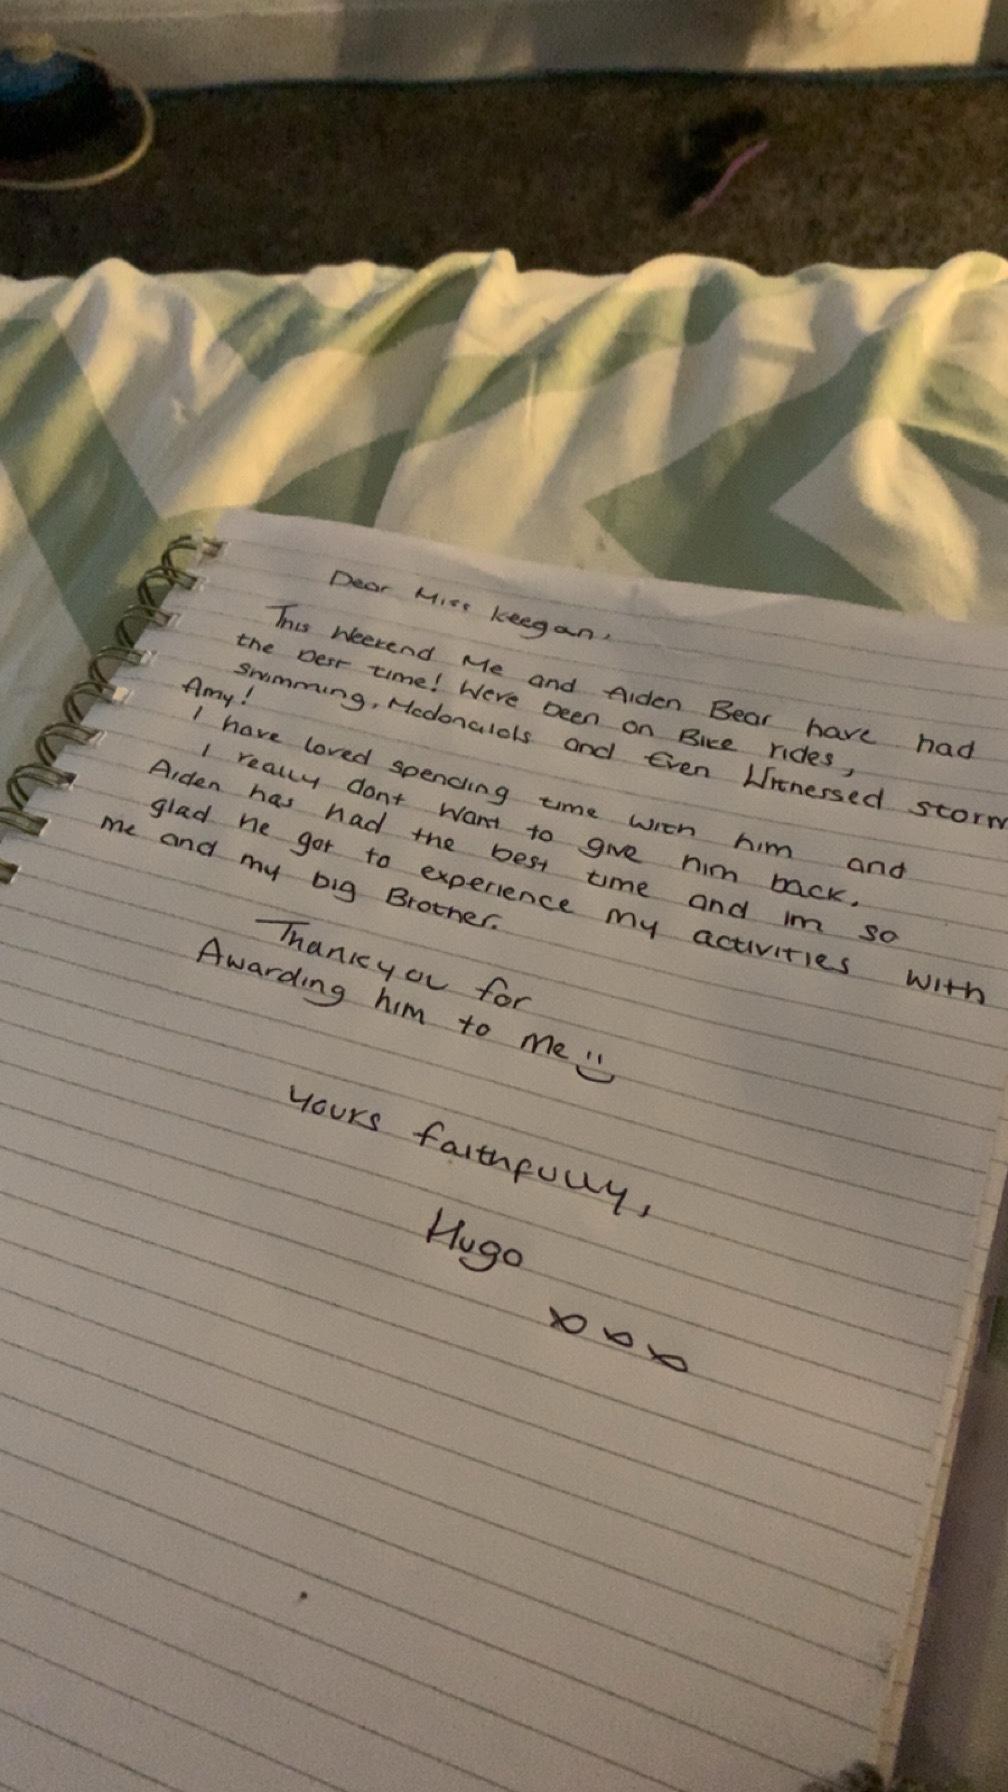 Dear Miss Keegan,
This Weekend Me and Aiden Bear have had
the best time! Weve been on Bike rides,
swimming, Mcdonalds and Even Witnessed storm
Amy!
I have loved spending time with him and
I really dont want to give him back.
Aiden has had the best time and im so
glad he got to experience my activities with
me and my big Brother.
Thankyou for
Awarding him to me :)
Yours faithfully,
Hugo
xxx